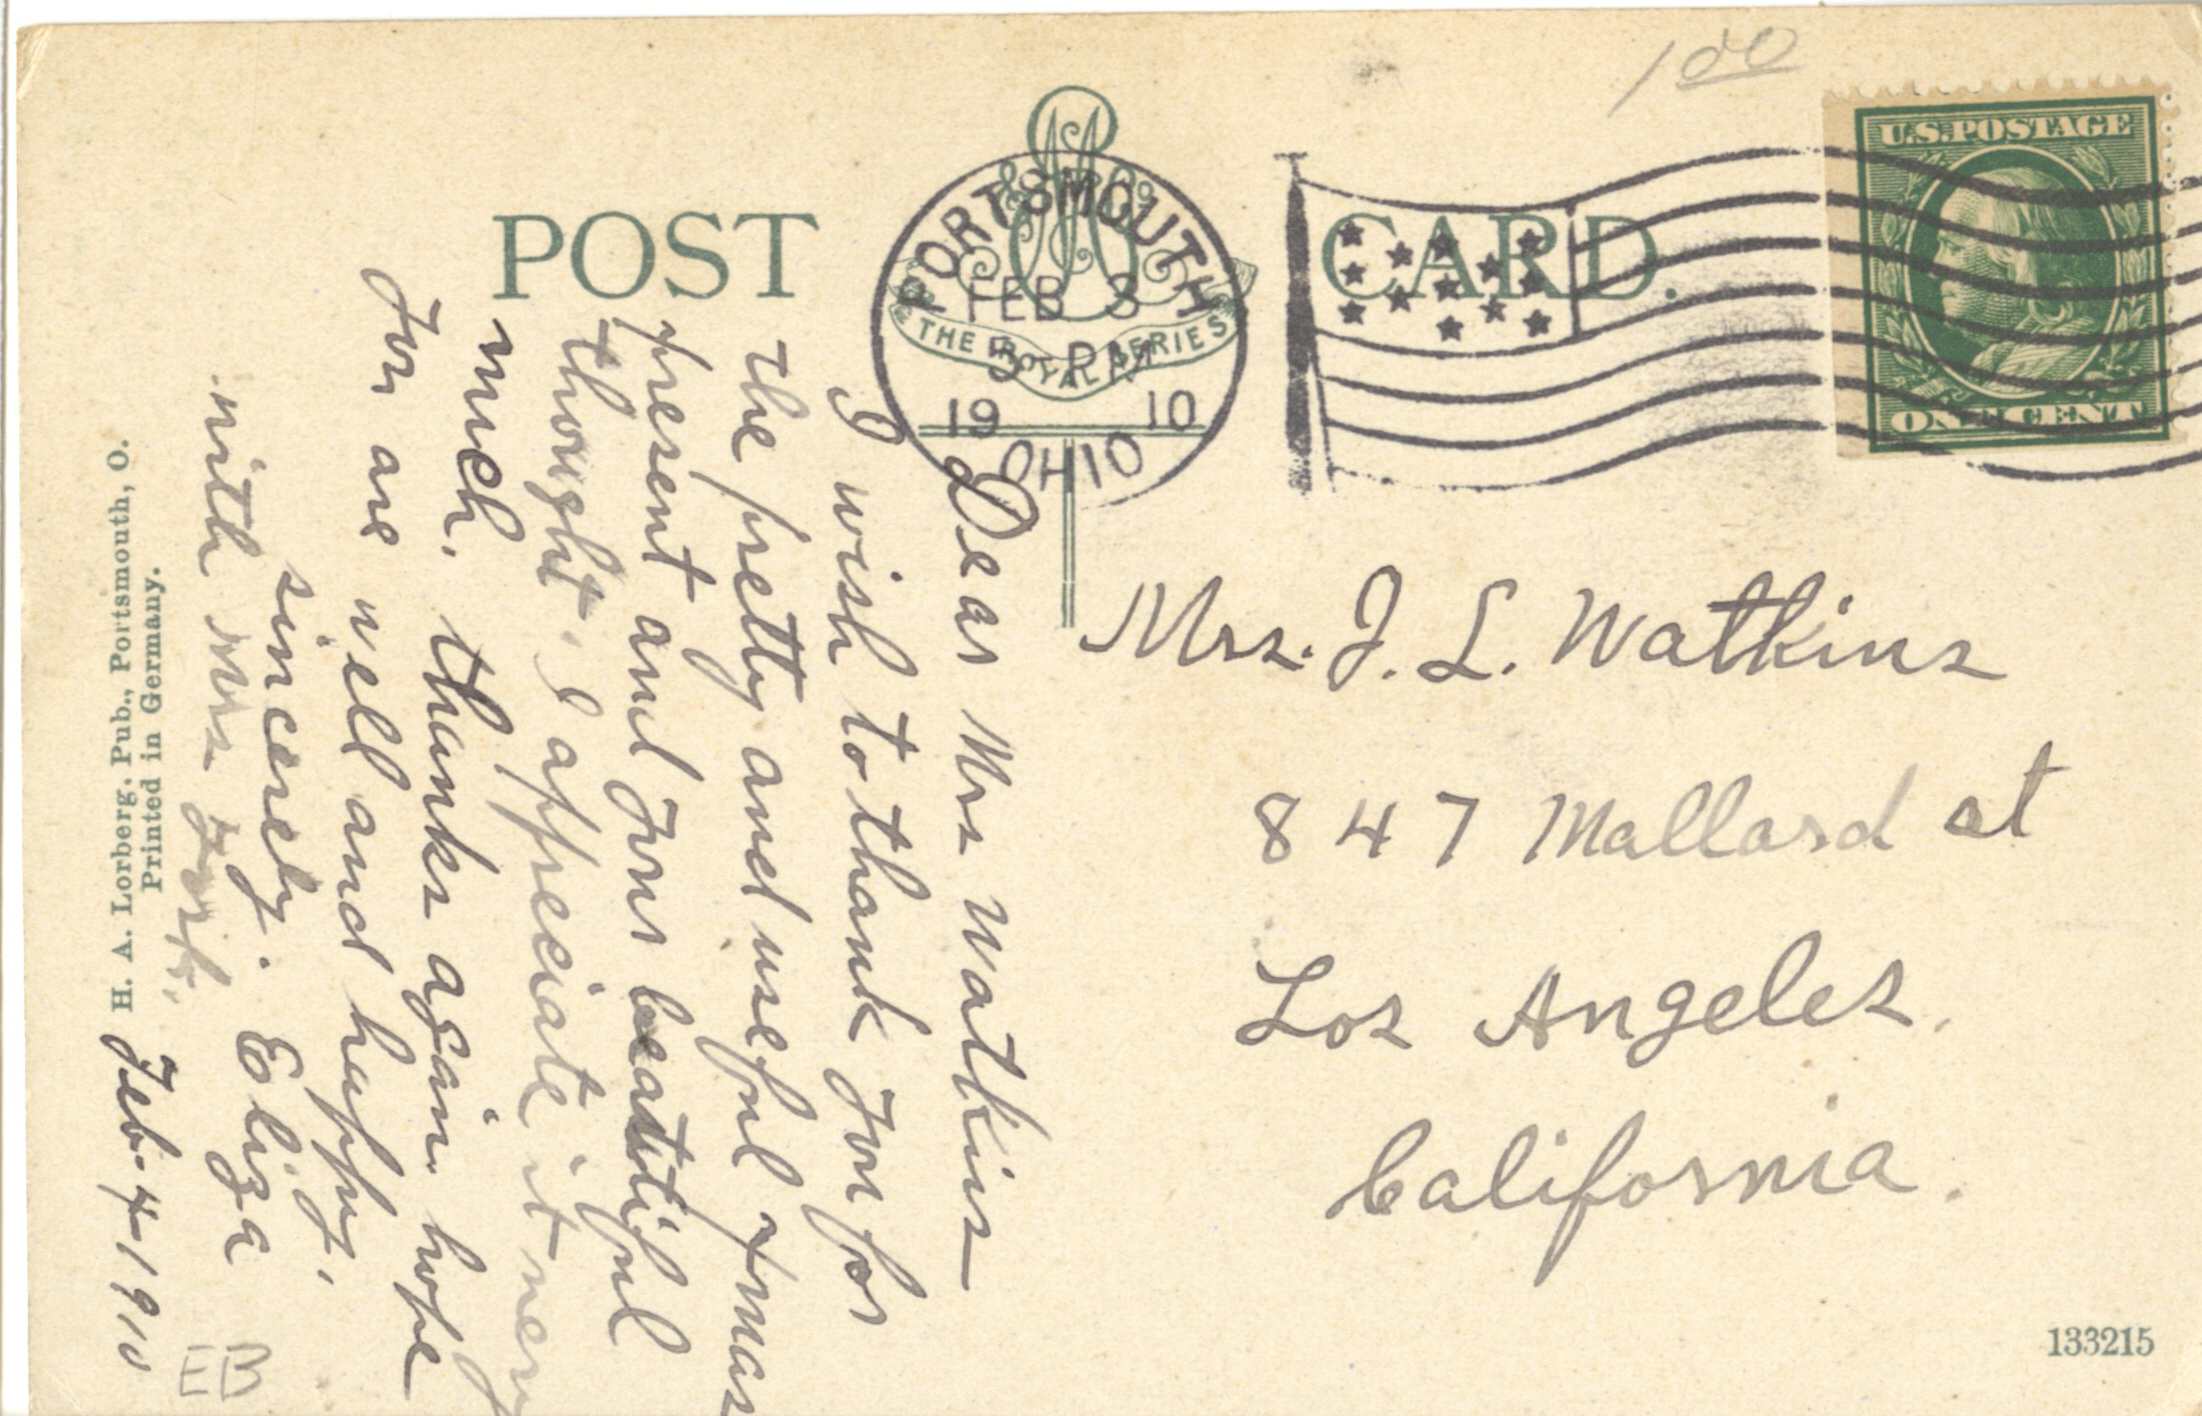 1 00
U.S. POSTAGE
ONE CENT
POST CARD.
THE ROYAL SERIES
PORTSMOUTH
FEB 3
5 PM
1910
OHIO
Dear Mrs Watkins
I wish to thank you for
the pretty and useful Xmas
present and your beautiful
thought. I appreciate it very
much. thanks again. hope
you are well and happy,
sincerely. Eliza
with Mrs York.
Feb. 4-1910
EB
Mrs. J. L. Watkins
847 Mallard st
Los Angeles.
California.
H. A. Lorberg, Pub., Portsmouth, O.
Printed in Germany.
133215